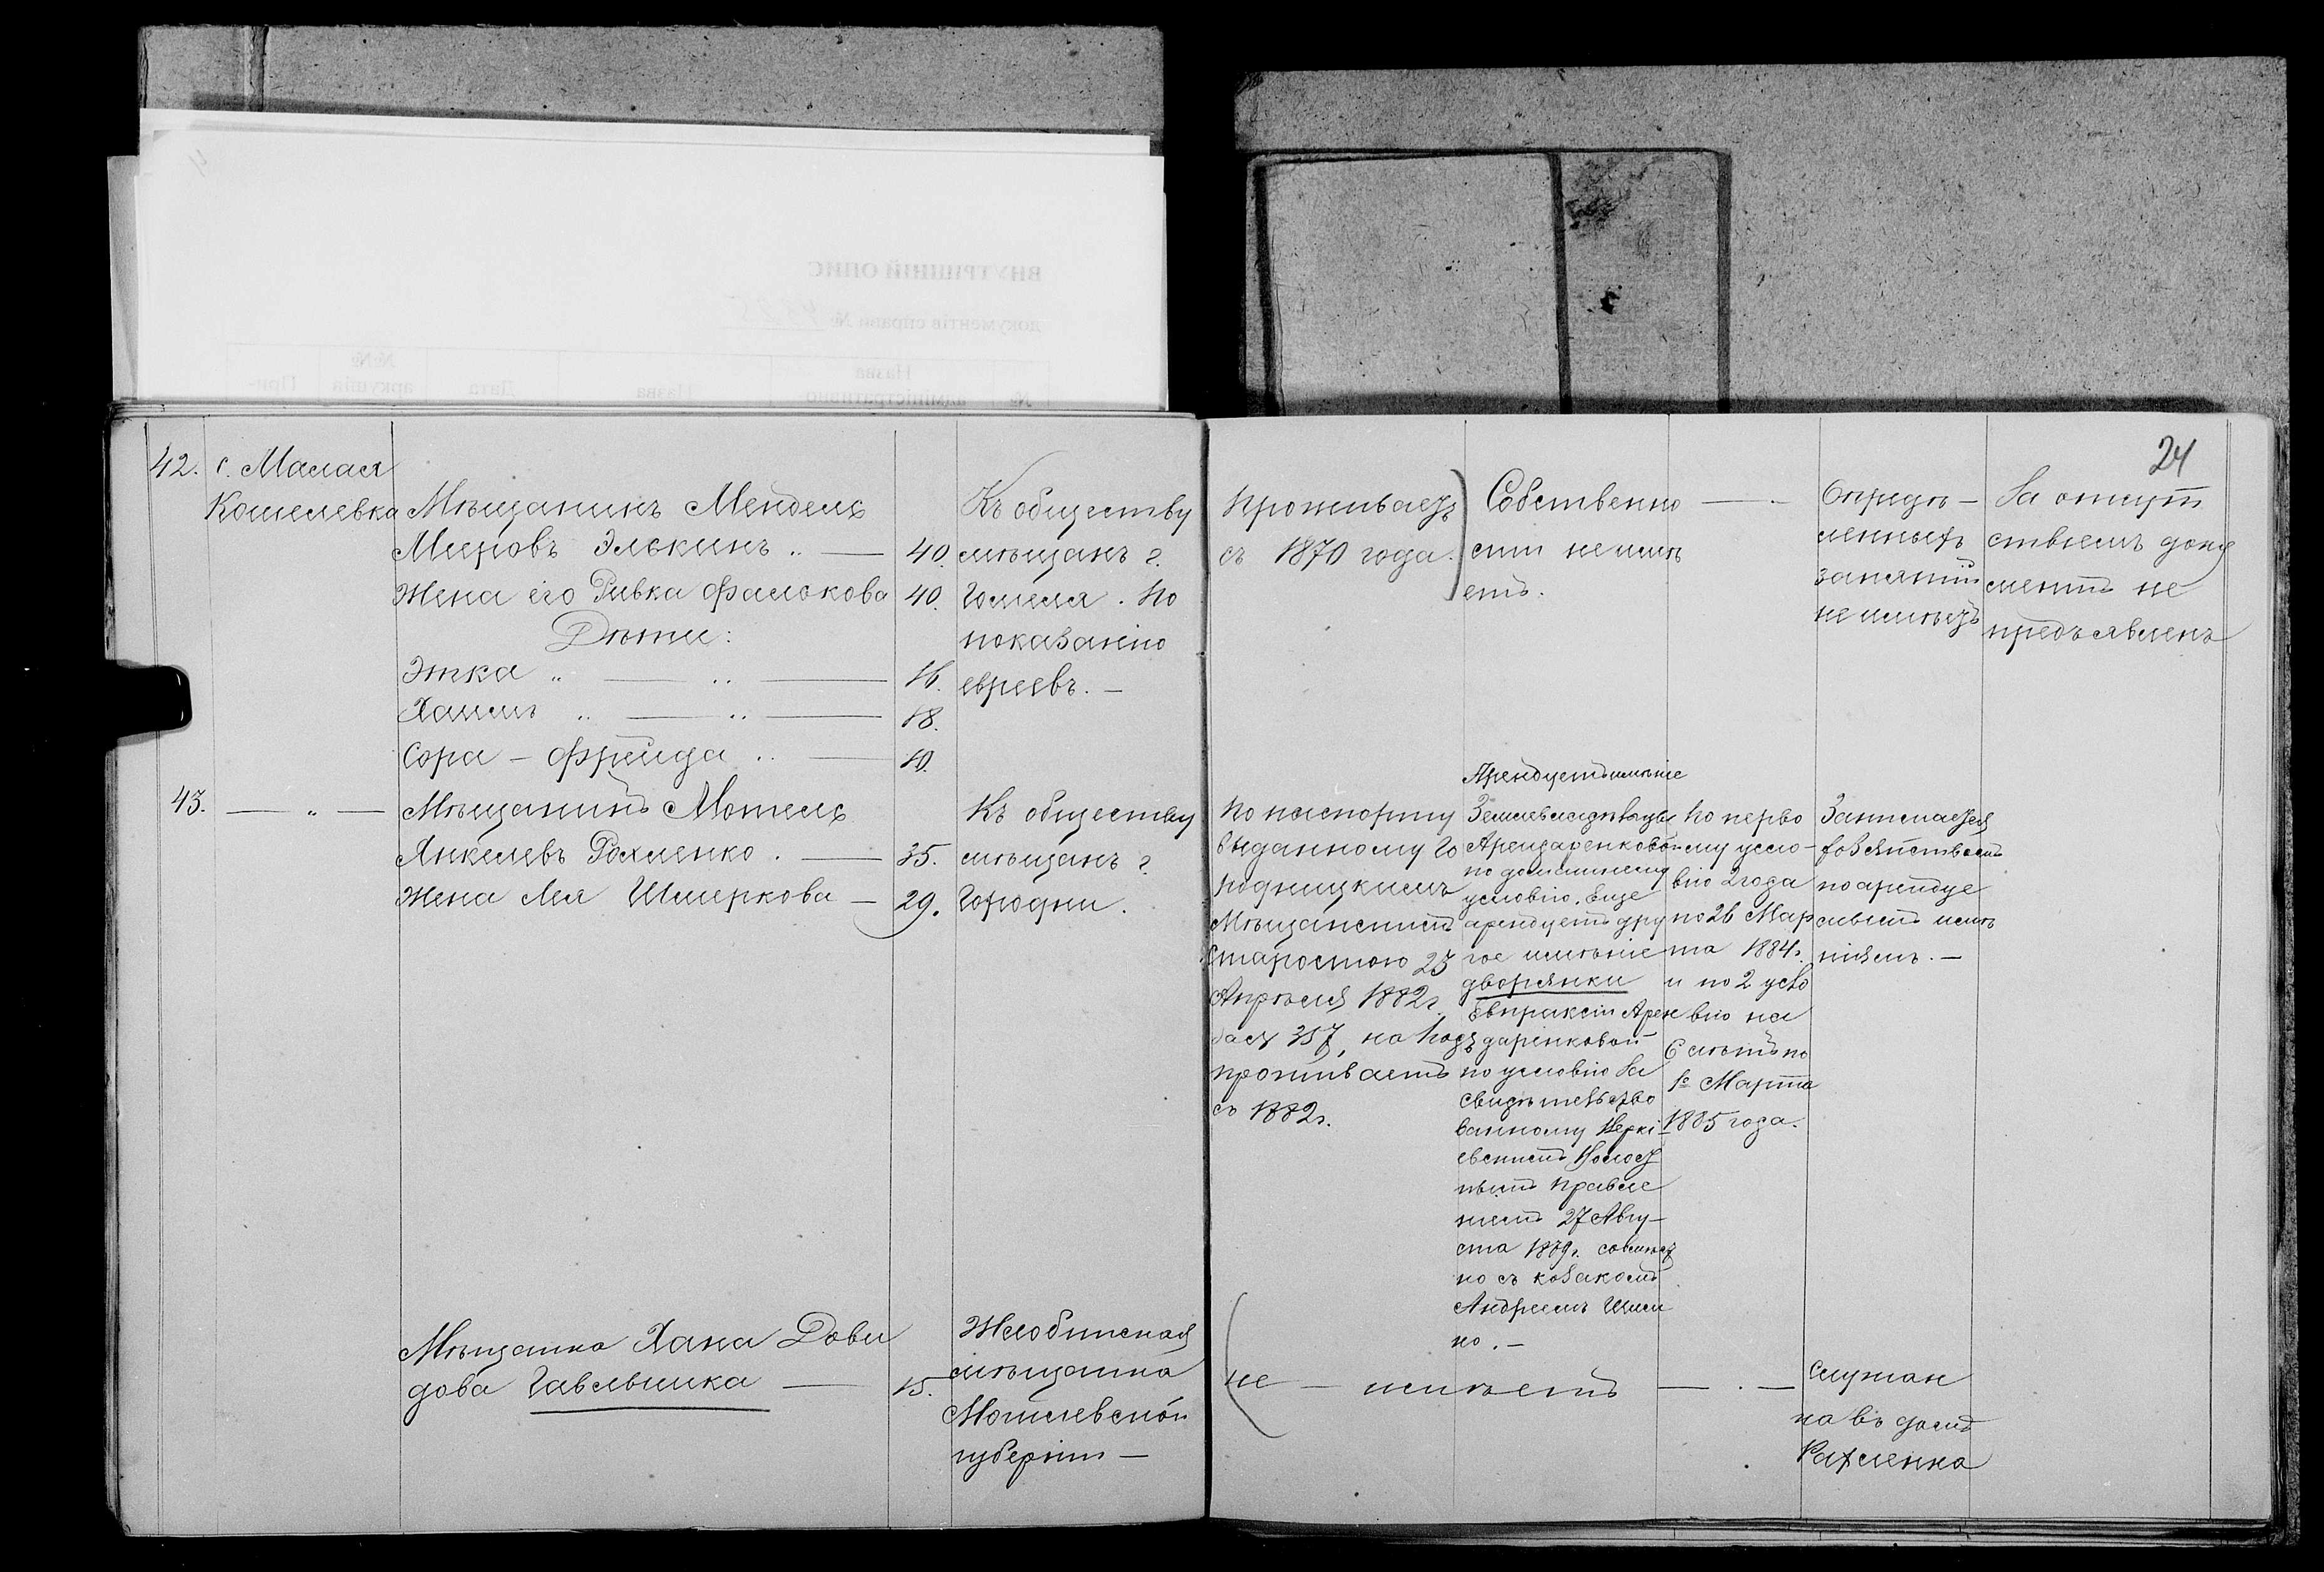 ВНУТРІШНІЙ ОПИС
документів справи №
№
Назва
адміністративно
Назва
Дата
№№
аркушів
При-
24
42.
с. Малая
Кошелевка
Мѣщанинъ Мендель
Мееровъ Элькинъ .. — 40.
Жена его Ривка Фалькова 40.
Дѣти:
Этка " — .. — 16.
Хаимъ .. — .. — 18.
Сора - Фрейда .. — 10.
Къ обществу
мѣщанъ г.
Гомеля. По
показанію
евреевъ. —
Проживаетъ
съ 1870 года.
Собственно
сти не имѣ
етъ.
— .
Опредѣ-
ленныхъ
занятій
не имѣетъ
За отсут
ствіемъ доку
ментъ не
предъявленъ
43. — " —
Мѣщанинъ Мотель
Янкелевъ Рохленко . — 35.
Жена Лея Шмеркова — 29.
Къ обществу
мѣщанъ г.
Городни.
По паспорту
выданному Го
родницкимъ
Мѣщанскимъ
Старостою 23
Апрѣля 1882 г.
за № 357, на годъ
проживаетъ
съ 1882 г.
Арендуетъ имѣніе
Землевладѣльцы
Арендаренковой
по домашнему
условію. Еще
арендуетъ дру
гое имѣніе
дворянки
Евпраксіи Арен
даренковой
по условію за
свидѣтельство
ванному Веркі-
евскимъ Волост
нымъ Правле
ніемъ 27 Авгу-
ста 1879 г. совмѣст
но съ козакомъ
Андреемъ Шим
ко. —
По перво
му усло-
вію 2 года
по 26 Мар
та 1884 г.
и по 2 усло
вію на
6 лѣтъ по
1е Марта
1885 года.
Занимается
хозяйствомъ
по арендуе
мымъ имѣ
ніямъ. —
Мѣщанка Хана Дови
дова Гавельчика — 15.
Жлобинская
мѣщанка
Могилевской
губерніи —
не — имѣетъ — . —
Служан
ка въ домѣ
Рахленка